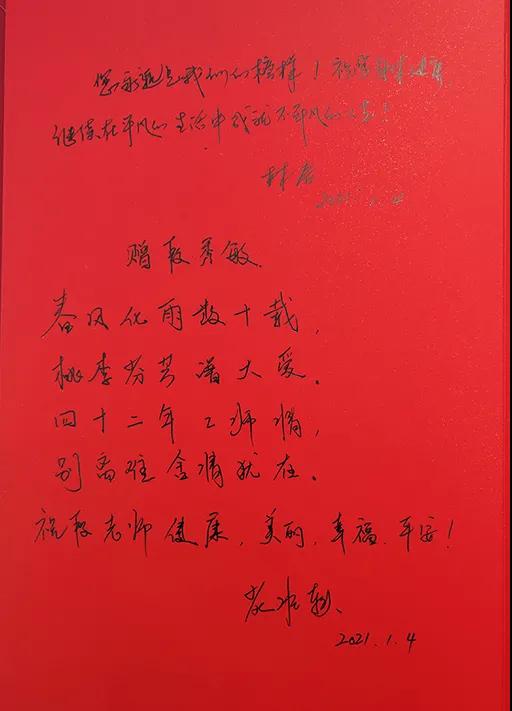 您永远是我们的榜样！祝您身体健康
继续在平凡的生活中成就不平凡的人生！
林
2021.1.4
赠 秀敏
春风化雨数十载，
桃李芬芳 大爱。
四十二年 师情，
别离难舍情犹在。
祝 老师健康，美丽，幸福，平安！
2021.1.4